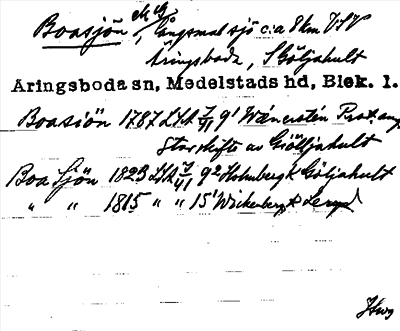 Boasjön, långsmal sjö c:a 8 km VSV
Åringsboda, S Göljahult
Åringsboda sn, Medelstads hd, Blek. l.
Boasiön 1787 LSA 7/VI 9¹ Wänerstén Prot. ang.
Storskifte av Giölljahult
Boa Sjön 1823 LSA 7/VI 9² Holmberg k Göljahult
" " 1815 " " 15¹ Wickenberg k